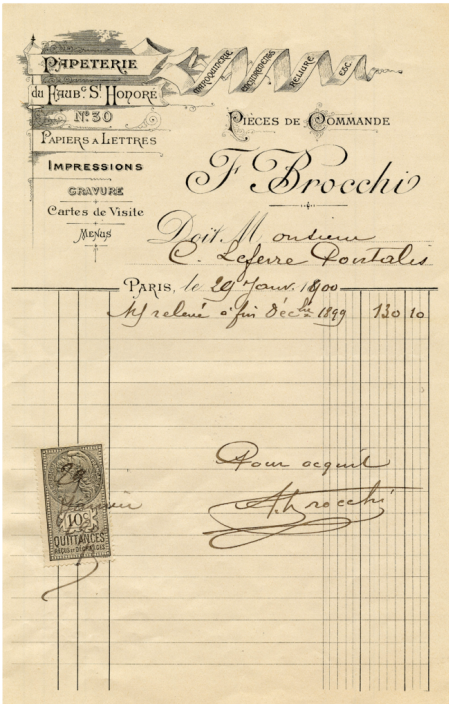 PAPETERIE
du FAUBG. ST. HONORÉ
No. 30
PAPIERS A LETTRES
IMPRESSIONS
GRAVURE
Cartes de Visite
MENUS
MAROQUINERIE
RELIURE
ETC.
PIÈCES DE COMMANDE
F Brocchi
Doit Monsieur
C. Lefevre Pontalis
PARIS, le 29 Janv. 1900
relevé à fin Décbre 1899 130 10
Pour acquit
F. Brocchi
29
Janvier
10c
QUITTANCES
REÇUS ET DÉCHARGES